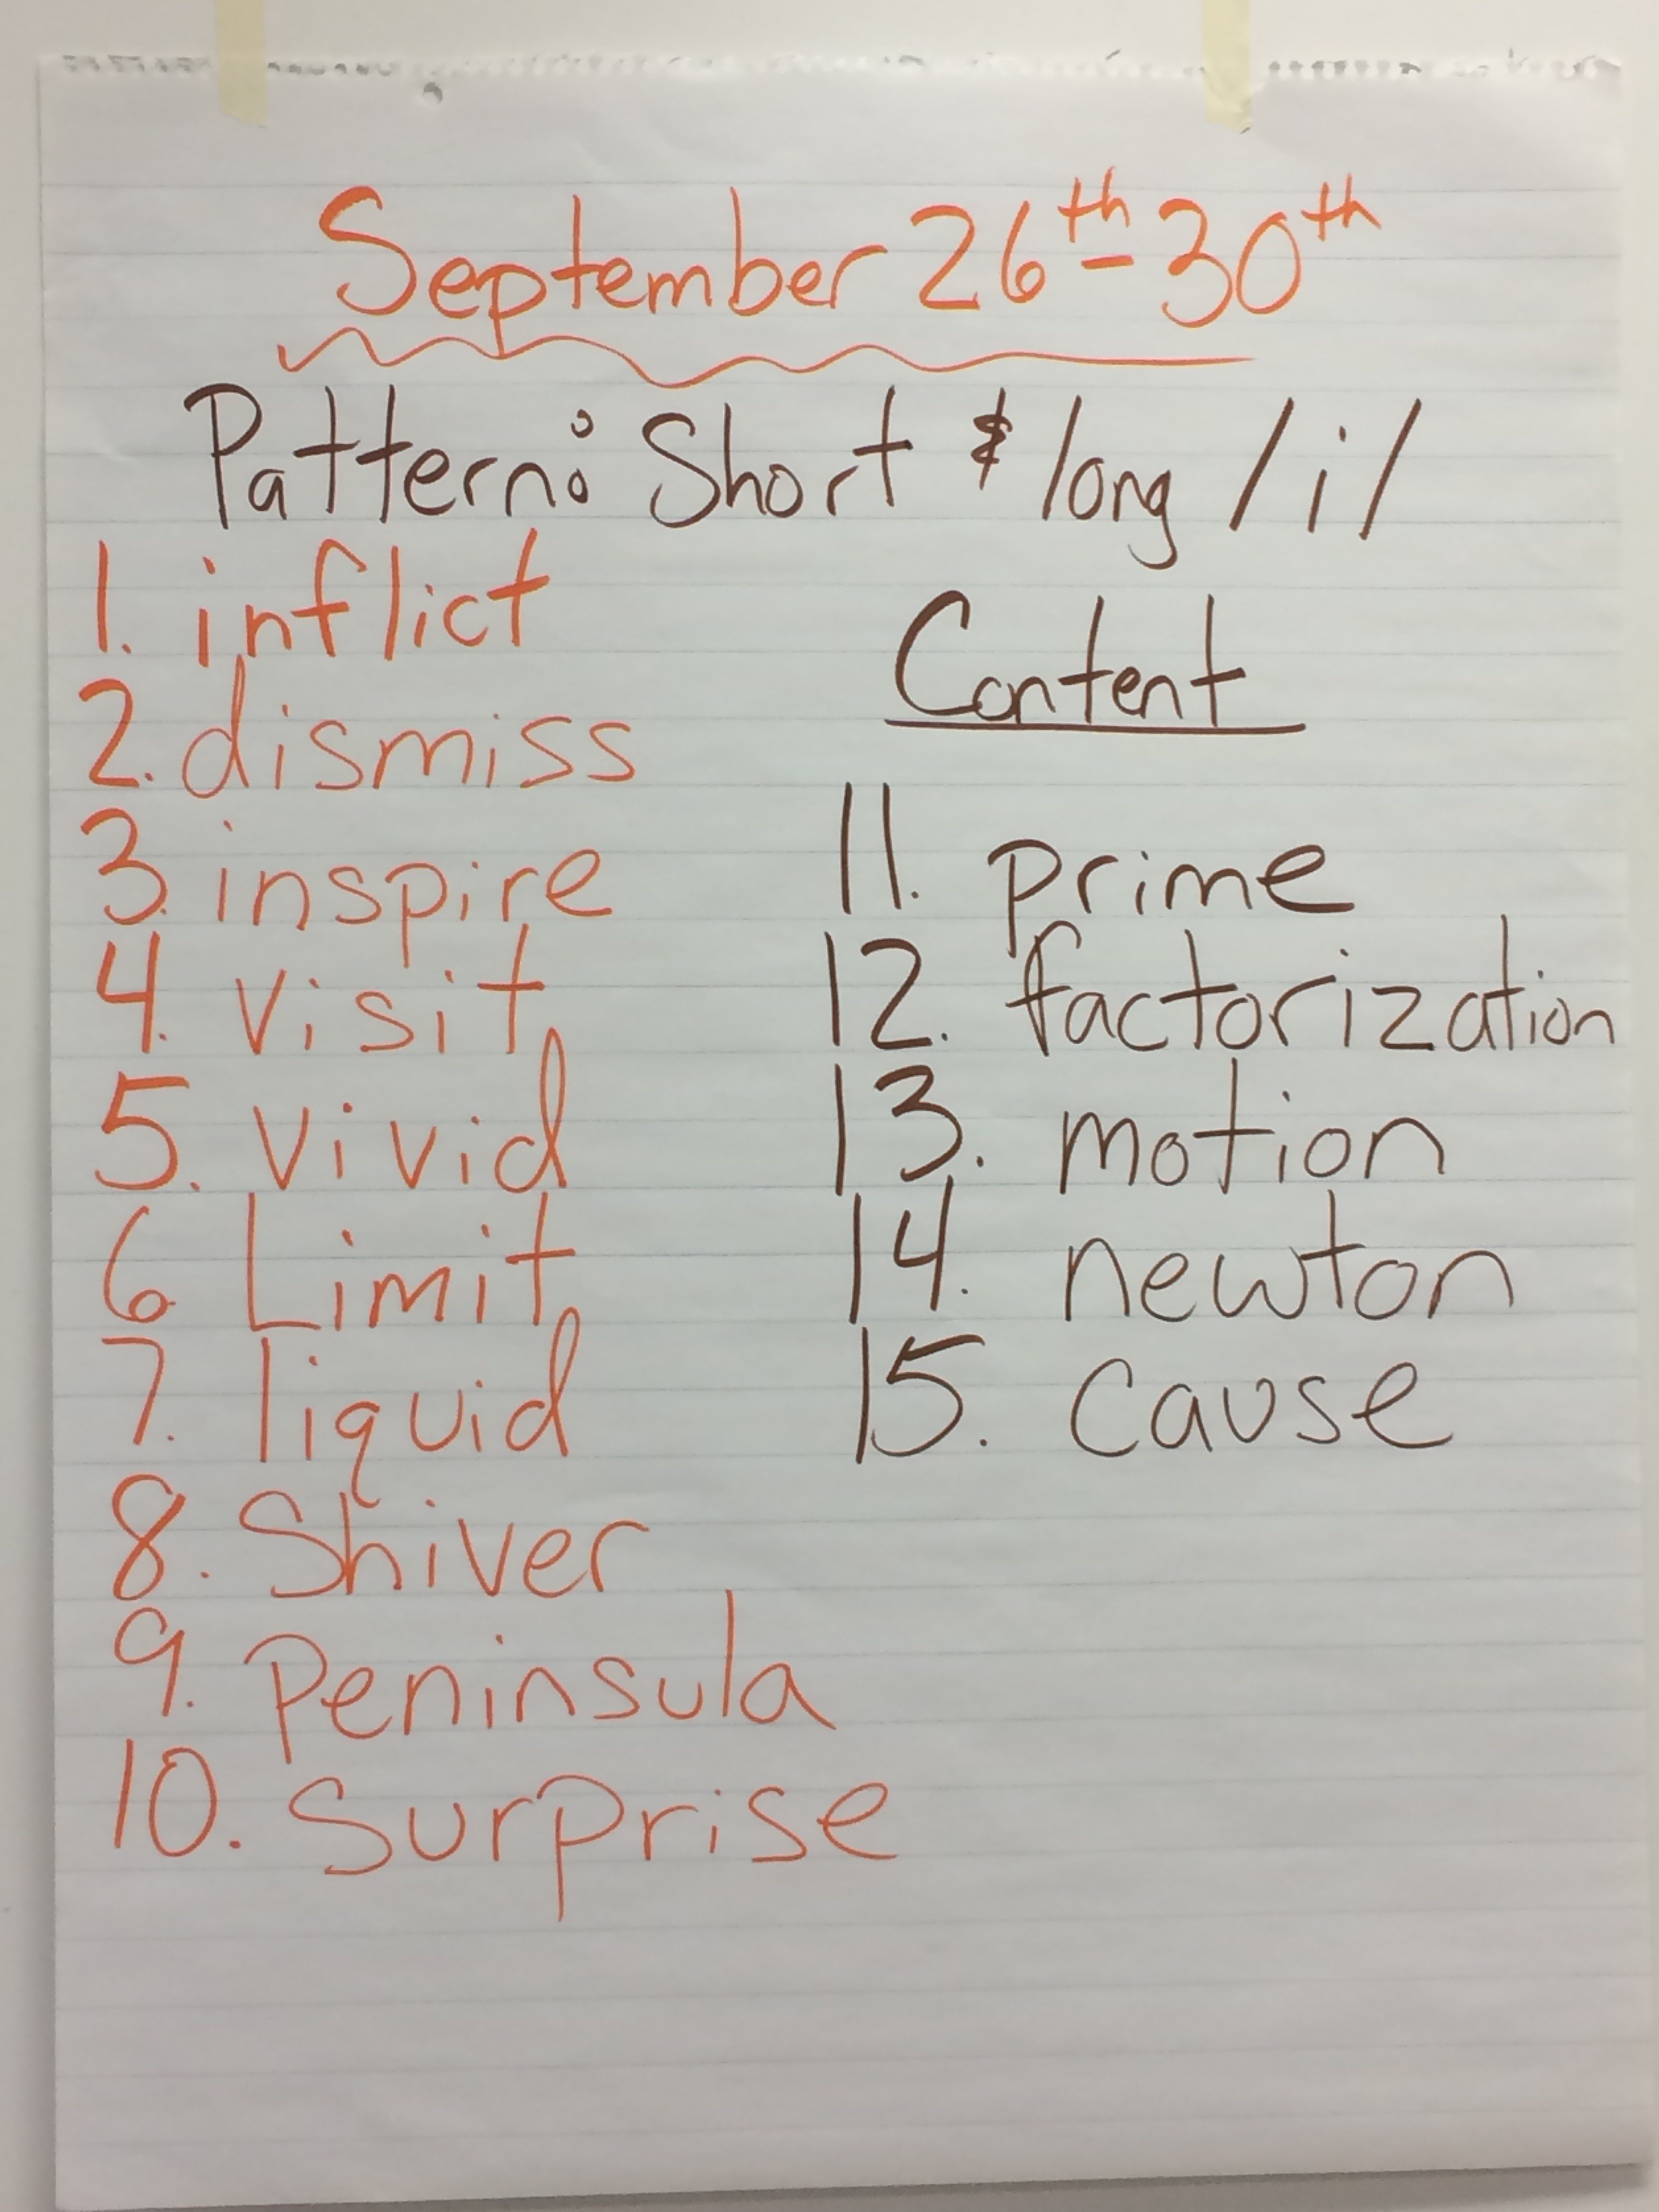 September 26th-30th
Pattern: Short & long /i/
1. inflict
2. dismiss
3. inspire
4. visit
5. vivid
6. Limit
7. liquid
8. Shiver
9. Peninsula
10. Surprise
Content
11. prime
12. factorization
13. motion
14. newton
15. cause